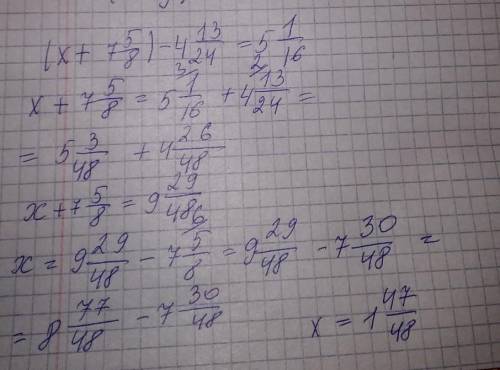 (x + 7 5/8) - 4 13/24 = 5 1/16
x + 7 5/8 = 5 1/16 + 4 13/24 =
= 5 3/48 + 4 26/48
x + 7 5/8 = 9 29/48
x = 9 29/48 - 7 5/8 = 9 29/48 - 7 30/48 =
= 8 77/48 - 7 30/48 x = 1 47/48